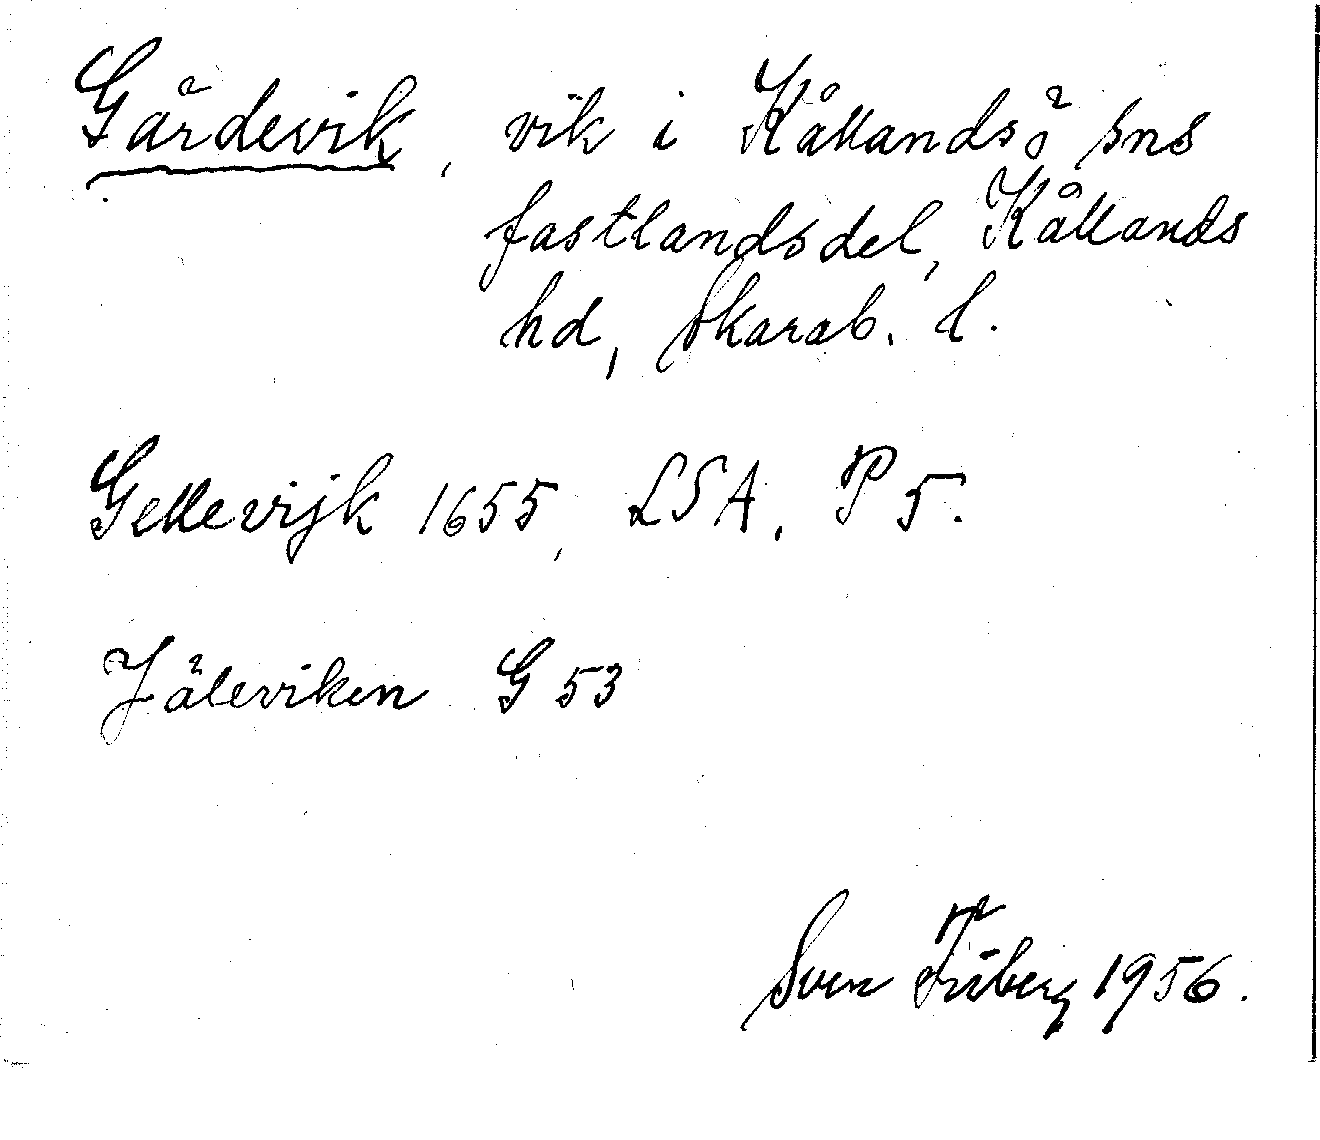 Gärdevik, vik i Kållandsö sns
fastlandsdel, Kållands
hd, Skarab. l.
Gellevijk 1655, LSA, P 5.
Jäleviken G 53
Sven Friberg 1956.